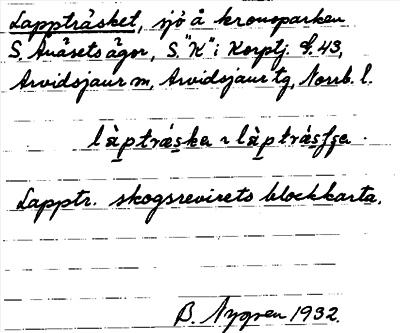 Lappträsket, sjö å kronoparken
S. Auåsets ägor, S. "K" i Korptj. f. 43,
Arvidsjaur sn, Arvidsjaur tg, Norrb. l.
làpträska ~ làpträsʃʃa.
Lapptr. skogsrevirets blockkarta.
B. Nygren 1932.